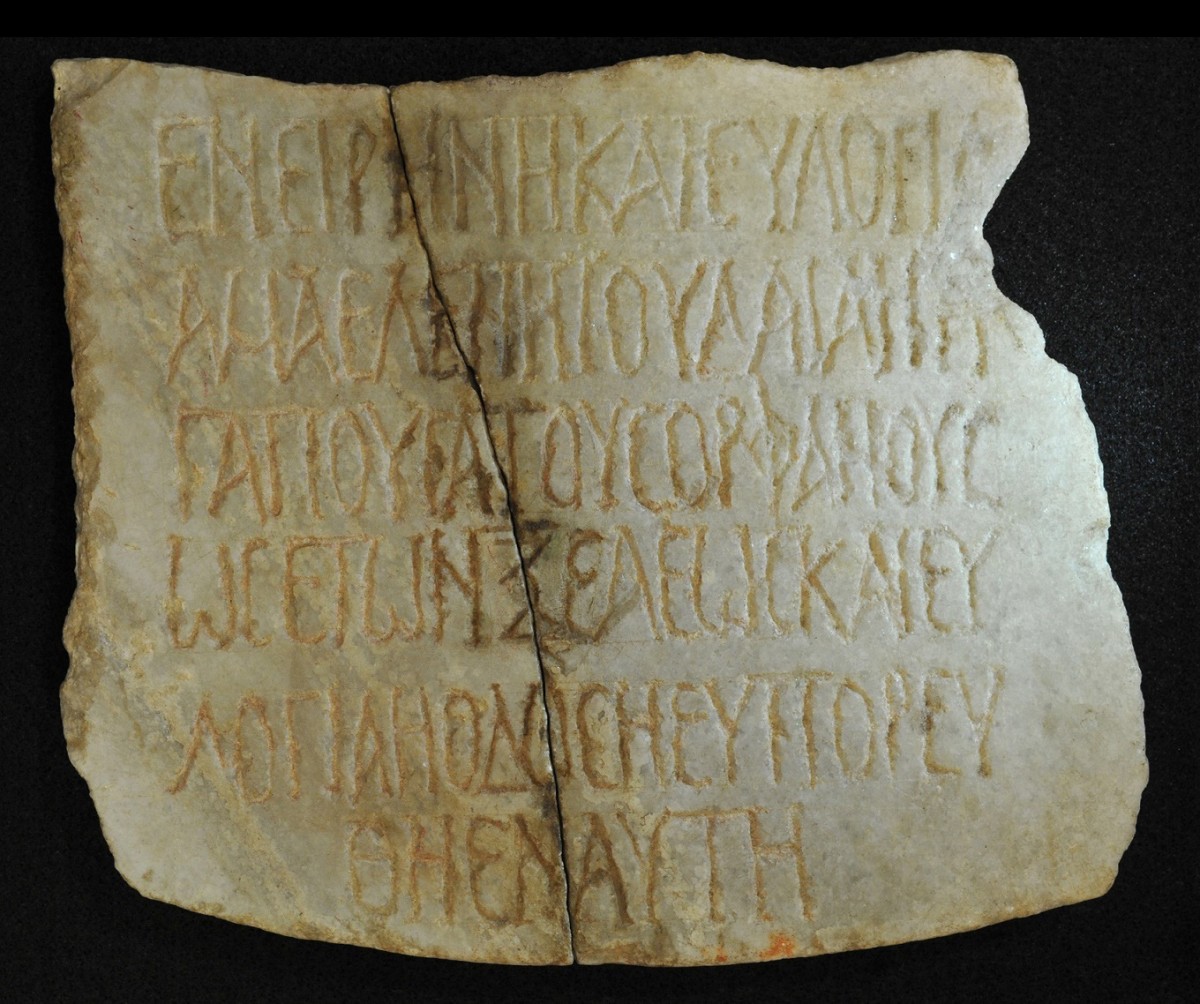 ΕΝΕΙΡΗΝΗΚΑΙΕΥΛΟΓΙΑ
ΑΜΑΕΛΕΝΗΙΟΥΔΑΙΑΗΗ
ΓΑΠΟΥϹΑΤΟΥϹΟΡΦΑΝΟΥϹ
ΩϹΕΤΩΝΞΕΛΕΩϹΚΑΙΕΥ
ΛΟΓΙΑΗΟΔΟΙϹΗΕΥΠΟΡΕΥ
ΘΗΕΝΑΥΤΗ